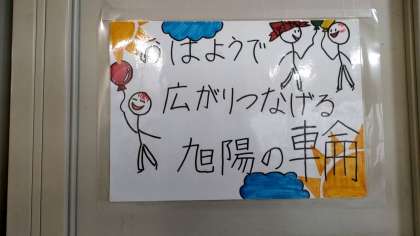 おはようで
広がりつなげる
旭陽の輪